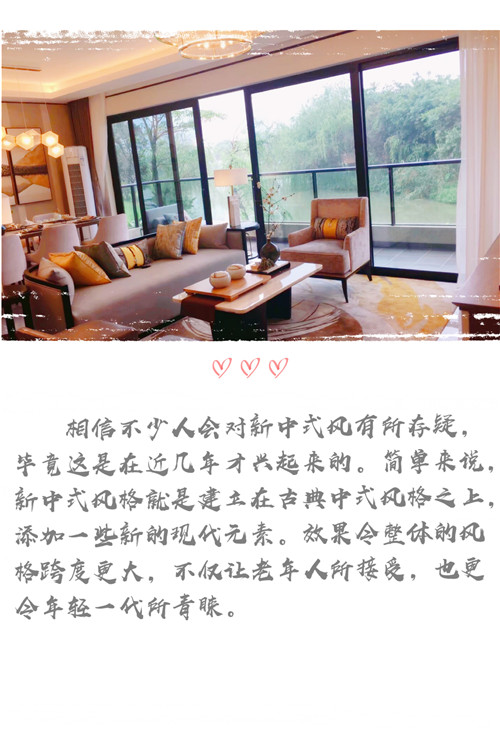 相信不少人会对新中式风有所存疑，
毕竟这是在近几年才兴起来的。简单来说，
新中式风格就是建立在古典中式风格之上，
添加一些新的现代元素。效果令整体的风
格跨度更大，不仅让老年人所接受，也更
令年轻一代所青睐。